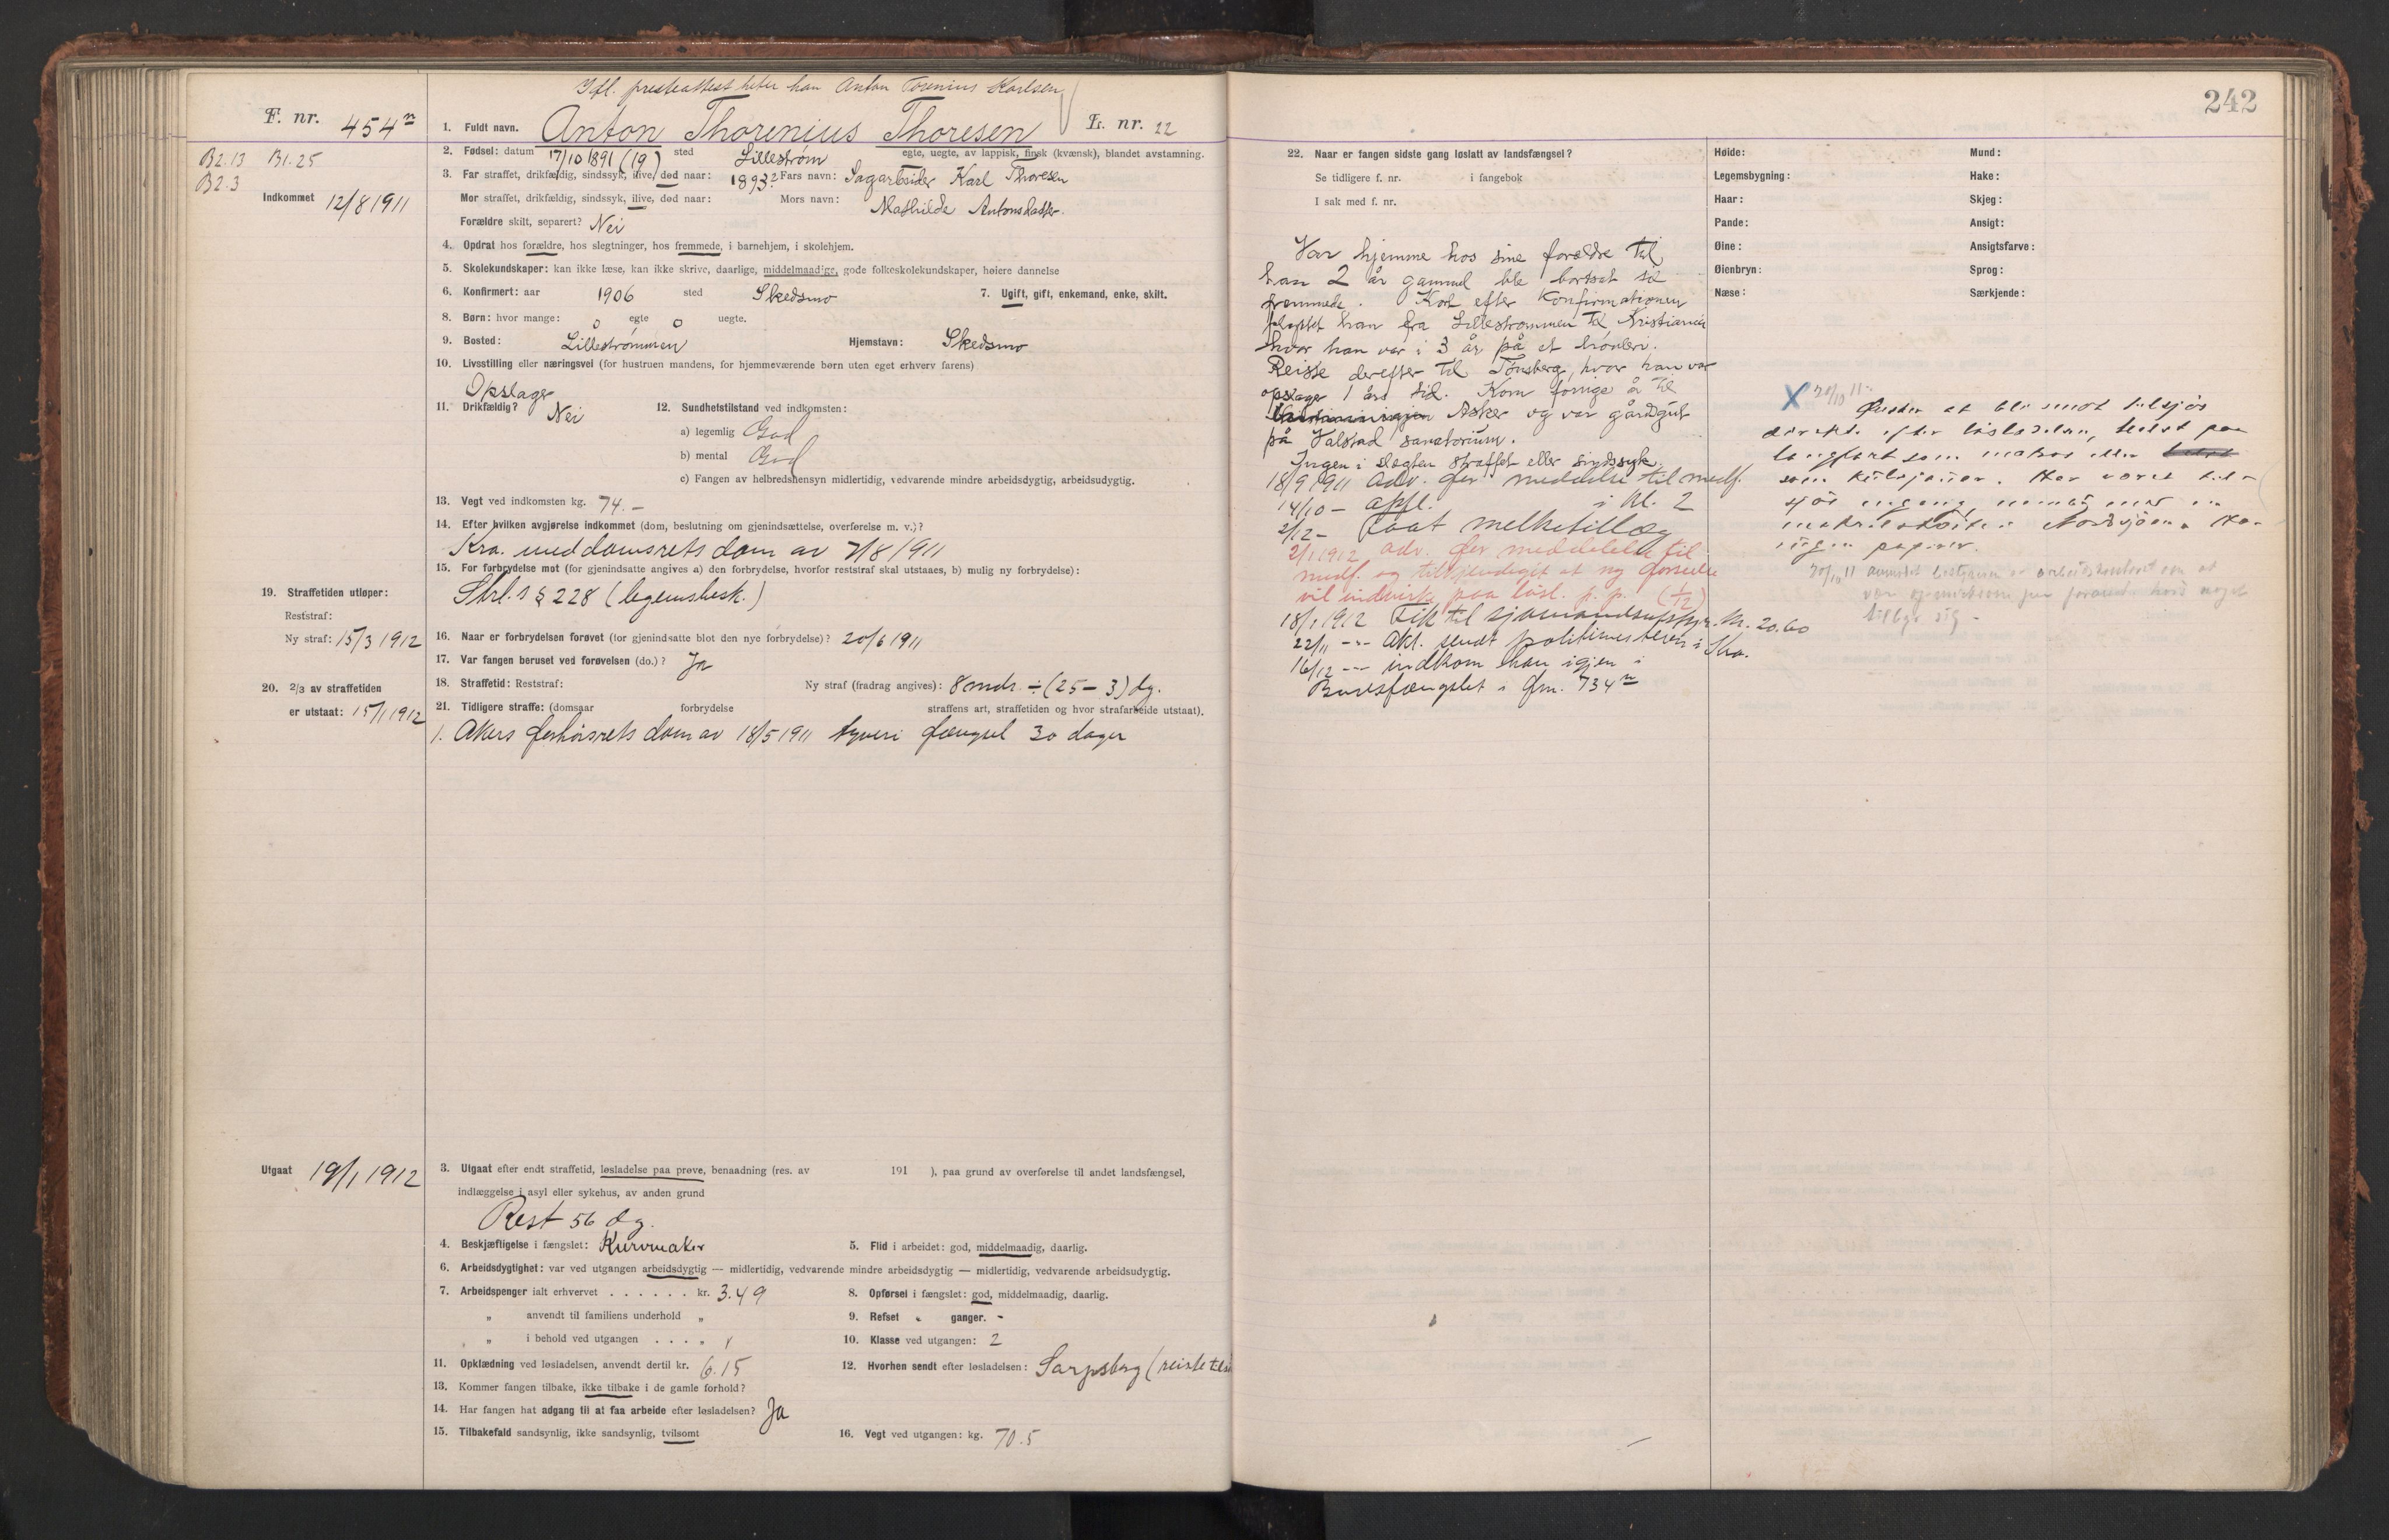 Ifl. presteattest heter han Anton Torenius Karlsen
F. nr. 454ⁿ
1. Fuldt navn. Anton Thorenius Thoresen L. nr. 22
B2.13 B1.25
B2.3
2. Fødsel: datum 17/10 1891 (19) sted Lillestrøm egte, uegte, av lappisk, finsk (kvænsk), blandet avstamning.
3. Far straffet, drikfældig, sindssyk, ilive, død naar: 1893? Fars navn: Sagarbeider Karl Thoresen
Indkommet 12/8 1911
Mor straffet, drikfældig, sindssyk, ilive, død naar: Mors navn: Mathilde Antonsdatter.
Forældre skilt, separert? Nei
4. Opdrat hos forældre, hos slegtninger, hos fremmede, i barnehjem, i skolehjem.
5. Skolekundskaper: kan ikke læse, kan ikke skrive, daarlige, middelmaadige, gode folkeskolekundskaper, høiere dannelse
6. Konfirmert: aar 1906 sted Skedsmo 7. Ugift, gift, enkemand, enke, skilt.
8. Børn: hvor mange: 0 egte 0 uegte.
9. Bosted: Lillestrømmen Hjemstavn: Skedsmo
10. Livsstilling eller næringsvei (for hustruen mandens, for hjemmeværende børn uten eget erhverv farens)
Opslager
11. Drikfældig? Nei 12. Sundhetstilstand ved indkomsten:
a) legemlig God
b) mental God
c) Fangen av helbredshensyn midlertidig, vedvarende mindre arbeidsdygtig, arbeidsudygtig.
13. Vegt ved indkomsten kg. 74.–
14. Efter hvilken avgjørelse indkommet (dom, beslutning om gjenindsættelse, overførelse m. v.)?
Kra. meddomsrets dom av 7/8 1911
15. For forbrydelse mot (for gjenindsatte angives a) den forbrydelse, hvorfor reststraf skal utstaaes, b) mulig ny forbrydelse):
Strl.s § 228 (legemsbesk.)
19. Straffetiden utløper:
Reststraf:
Ny straf: 15/3 1912
16. Naar er forbrydelsen forøvet (for gjenindsatte blot den nye forbrydelse)? 20/6 1911
17. Var fangen beruset ved forøvelsen (do.)? Ja
18. Straffetid: Reststraf: Ny straf (fradrag angives): 8 mndr ÷ (25 – 3) dg.
20. 2/3 av straffetiden
er utstaat: 15/1 1912
21. Tidligere straffe: (domsaar forbrydelse straffens art, straffetiden og hvor strafarbeide utstaat).
1. Akers forhørsrets dom av 18/5 1911 tyveri fængsel 30 dager
Utgaat 19/1 1912
3. Utgaat efter endt straffetid, løsladelse paa prøve, benaadning (res. av 191 ), paa grund av overførelse til andet landsfængsel,
indlæggelse i asyl eller sykehus, av anden grund
Rest 56 dg.
4. Beskjæftigelse i fængslet: Kurvmaker 5. Flid i arbeidet: god, middelmaadig, daarlig.
6. Arbeidsdygtighet: var ved utgangen arbeidsdygtig — midlertidig, vedvarende mindre arbeidsdygtig — midlertidig, vedvarende arbeidsudygtig.
7. Arbeidspenger ialt erhvervet . . . . . . kr. 3.49 8. Opførsel i fængslet: god, middelmaadig, daarlig.
„ anvendt til familiens underhold „ 9. Refset „ ganger. –
„ i behold ved utgangen . . . „ 10. Klasse ved utgangen: 2
11. Opklædning ved løsladelsen, anvendt dertil kr. 6.15 12. Hvorhen sendt efter løsladelsen: Sarpsborg (reiste
13. Kommer fangen tilbake, ikke tilbake i de gamle forhold?
14. Har fangen hat adgang til at faa arbeide efter løsladelsen? Ja
15. Tilbakefald sandsynlig, ikke sandsynlig, tvilsomt 16. Vegt ved utgangen: kg. 70.5
242
22. Naar er fangen sidste gang løslatt av landsfængsel?
Se tidligere f. nr. i fangebok
I sak med f. nr.
Var hjemme hos sine forældre til
han 2 år gammel ble bortsat til
fremmede. Kort efter Konfirmationen
flyttet han fra Lillestrømmen til Kristiania
hvor han var i 3 år på et
Reiste derefter til Tønsberg, hvor han var
opslager 1 års tid. Kom forrige å til
Asker og var gårdsgut
på Valstad sanatorium.
Ingen i slegten straffet eller sindssyk.
18/9 1911 adv. for meddelelse til medf.
14/10 – opfl. i kl. 2
2/12 – faat melketillæg
2/1 1912 adv. for meddelelse til
medf. og tilkjendegit at ny forseelse
vil indvirke paa løsl. p. p. (1/12)
18/1 1912 Fik til sjømandsutstyr. kr. 20.60
22/11 –"– Akt. sendt politimesteren i Kra.
16/12 –"– indkom han igjen i
Bodsfængslet i fnr. 734ⁿ
Høide: Mund:
Legemsbygning: Hake:
Haar: Skjeg:
Pande: Ansigt:
Øine: Ansigtsfarve:
Øienbryn: Sprog:
Næse: Særkjende:
X 20/10 11
Ønsker at bli sendt tilsjøs
direkte efter løsladelsen, helst paa
langfart som matros eller
som Har været til-
sjøs engang, nemlig med en
i Nordsjøen. Har
ingen papirer.